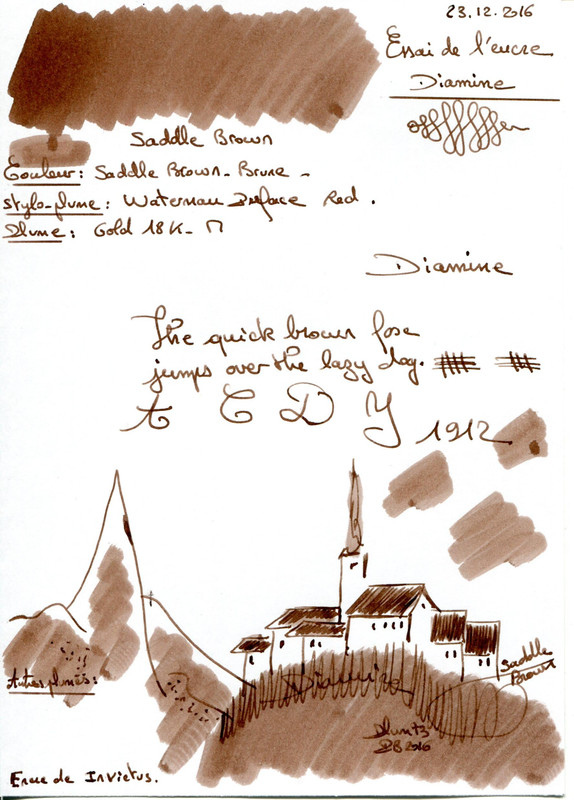 23.12.2016
Essai de l'encre
Diamine
Saddle Brown
Couleur: Saddle Brown-Brune-
stylo-plume: Waterman Preface Red.
Plume: Gold 18K- M
Diamine
The quick brown foxe
jumps over the lazy dog.
A C D Y 1912
Saddle
Brown
Autres plumes:
Diamine
2016
Encre de Invictus.